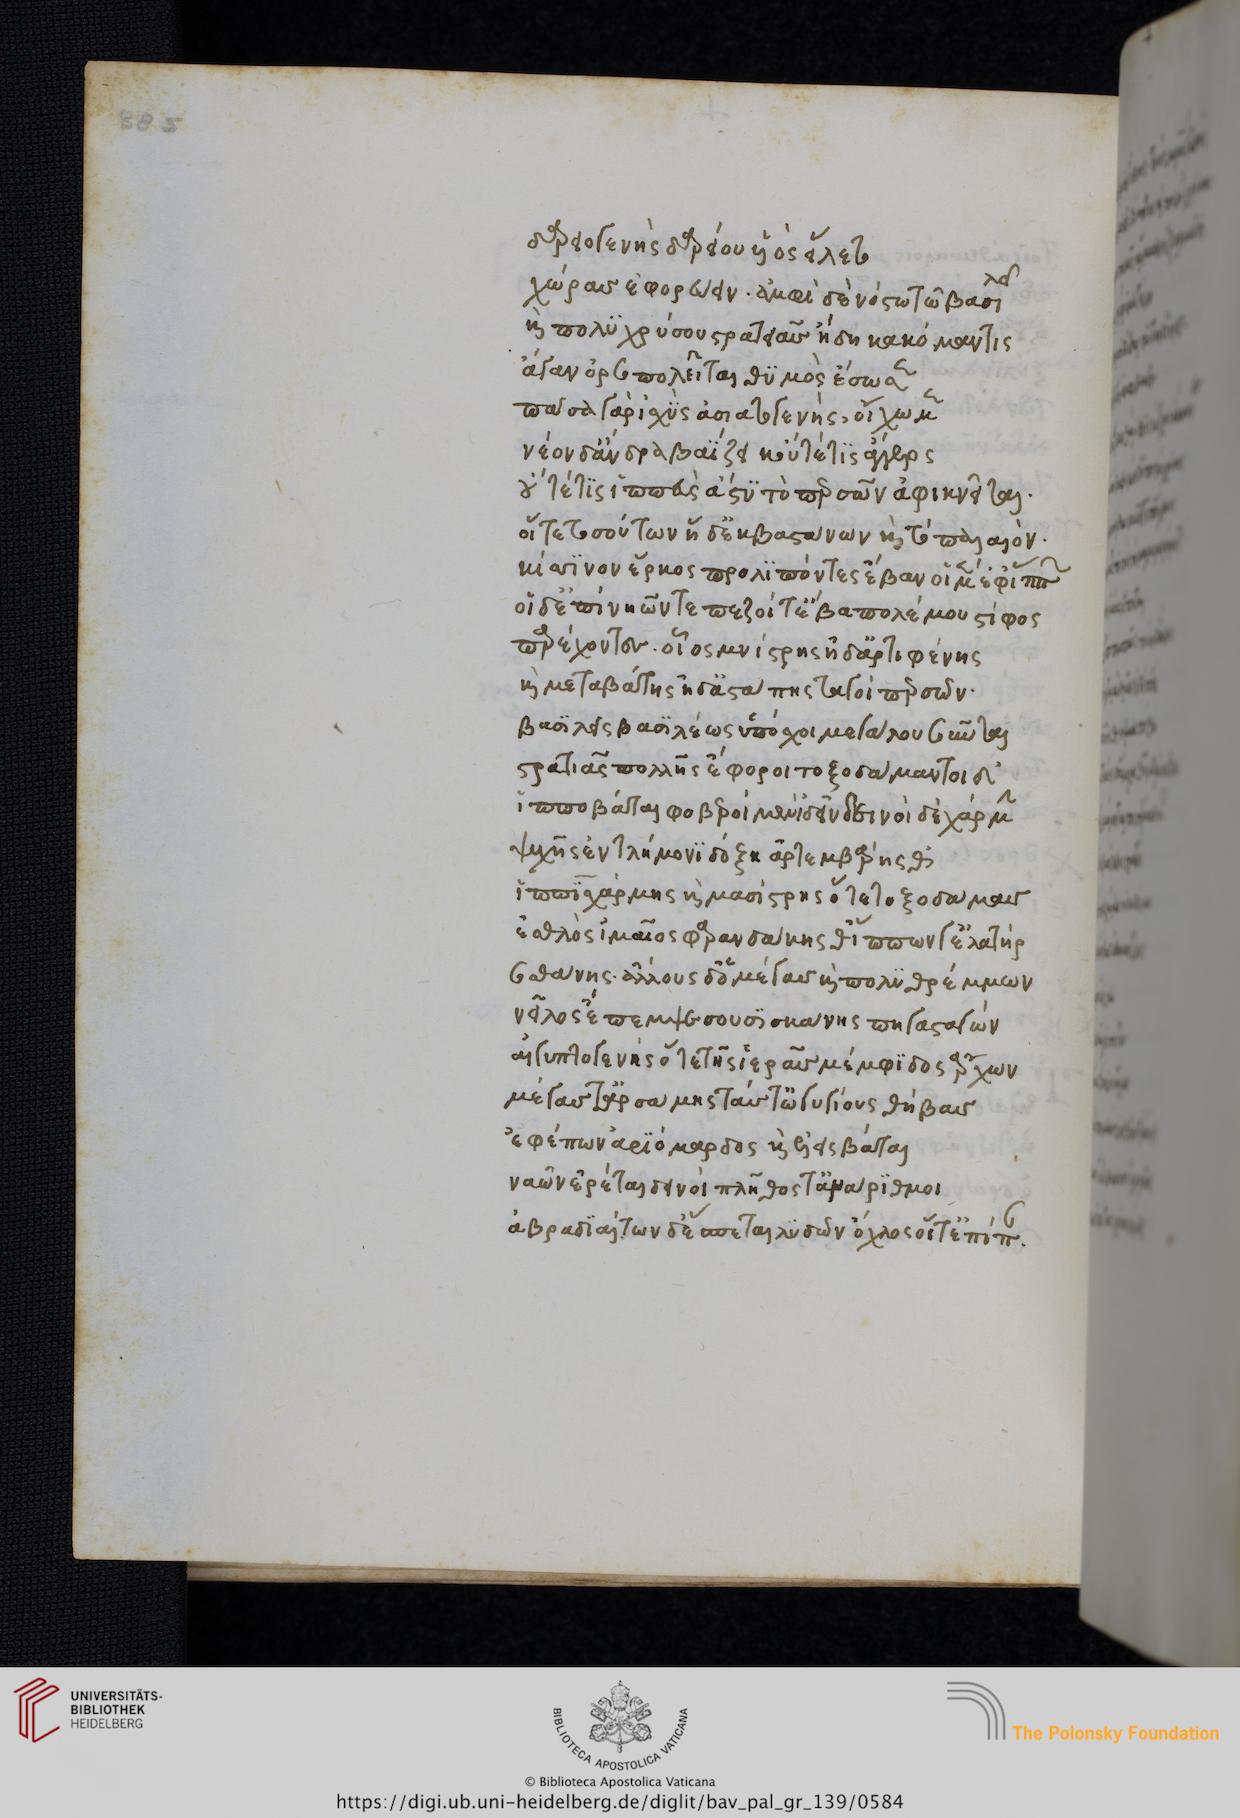 δαρειογενὴς δαρείου υἱὸς εἵλετο
χώρας ἐφορεύειν. ἀμφὶ δὲ νόστω τῶ βασιλείω
καὶ πολυχρύσου στρατιᾶς ἤδη κακόμαντις
ἄγαν ὀρσοπολεῖται θυμὸς ἔσωθεν
πᾶσα γὰρ ἰσχὺς ἀσιατογενὴς, οἴχωκε
νέον δ' ἄνδρα βαΰζει κοὔτέ τις ἄγγελος
οὔτέ τις ἱππεὺς ἄστυ τὸ περσῶν ἀφικνεῖται.
οἵτε τὸ σούσων ἠδ' ἐκβατάνων καὶ τὸ παλαιὸν.
κίσσινον ἕρκος προλιπόντες ἔβαν οἱ μὲν ἐφ' ἵππων
οἱ δ' ἐπὶ ναῶν τε πεζοί τε βα πολέμου στίφος
παρέχοντες. οἷος ἀμίστρης ἠδ' ἀρτιφέρνης
καὶ μεταβάτης ἠδ' ἀστάπης ταγοὶ περσῶν.
βασιλεῖς βασιλέως ὕποχοι μεγάλου σοῦνται
στρατιᾶς πολλῆς ἔφοροι τοξοδάμαντοι δ'
ἱπποβάται φοβεροὶ μὲν ἰδεῖν δεινοὶ δὲ μάχην
ψυχῆς ἐν τλήμονι δόξη ἀρτεμβάρης θ'
ἱππιοχάρμης καὶ μασίστρης ὅ τε τοξοδάμας
ἐσθλὸς ἱμαῖος φαρανδάκης θ' ἵππων τ' ἐλατὴρ
σοσθάνης. ἄλλους δ' ὁ μέγας καὶ πολυθρέμμων
νεῖλος ἔπεμψε σουσισκάνης πηγασταγὼν
αἰγυπτογενὴς ὅ τε τῆς ἱερᾶς μέμφιδος ἄρχων
μέγας τ' ἀρσάμης τάς τ' ὠγυγίους θήβας
ἐφέπων ἀριόμαρδος καὶ ἑλειοβάται
ναῶν ἐρέται δεινοὶ πλῆθός τ' ἀνάριθμοι
ἁβροδιαίτων δ' ἕπεται λυδῶν ὄχλος οἵτ' ἐπίπαν.
UNIVERSITÄTS-
BIBLIOTHEK
HEIDELBERG
BIBLIOTECA APOSTOLICA VATICANA
The Polonsky Foundation
© Biblioteca Apostolica Vaticana
https://digi.ub.uni-heidelberg.de/diglit/bav_pal_gr_139/0584